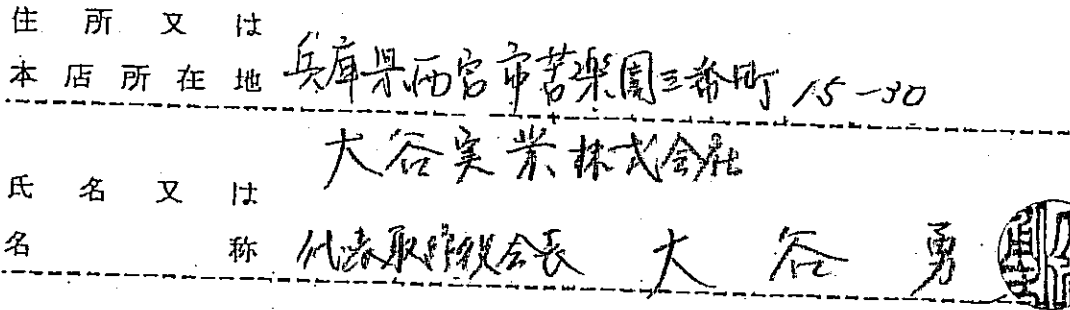 住所又は
本店所在地 兵庫県西宮市苦楽園三番町15-30
大谷実業株式会社
氏名又は
名称 代表取締役会長 大谷勇